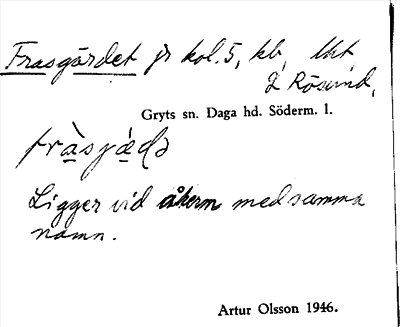 Frasgärdet jr kol. 5, kb, Ukt
L Rösund,
Gryts sn. Daga hd. Söderm. l.
Ligger vid åkern med samma
namn.
Artur Olsson 1946.